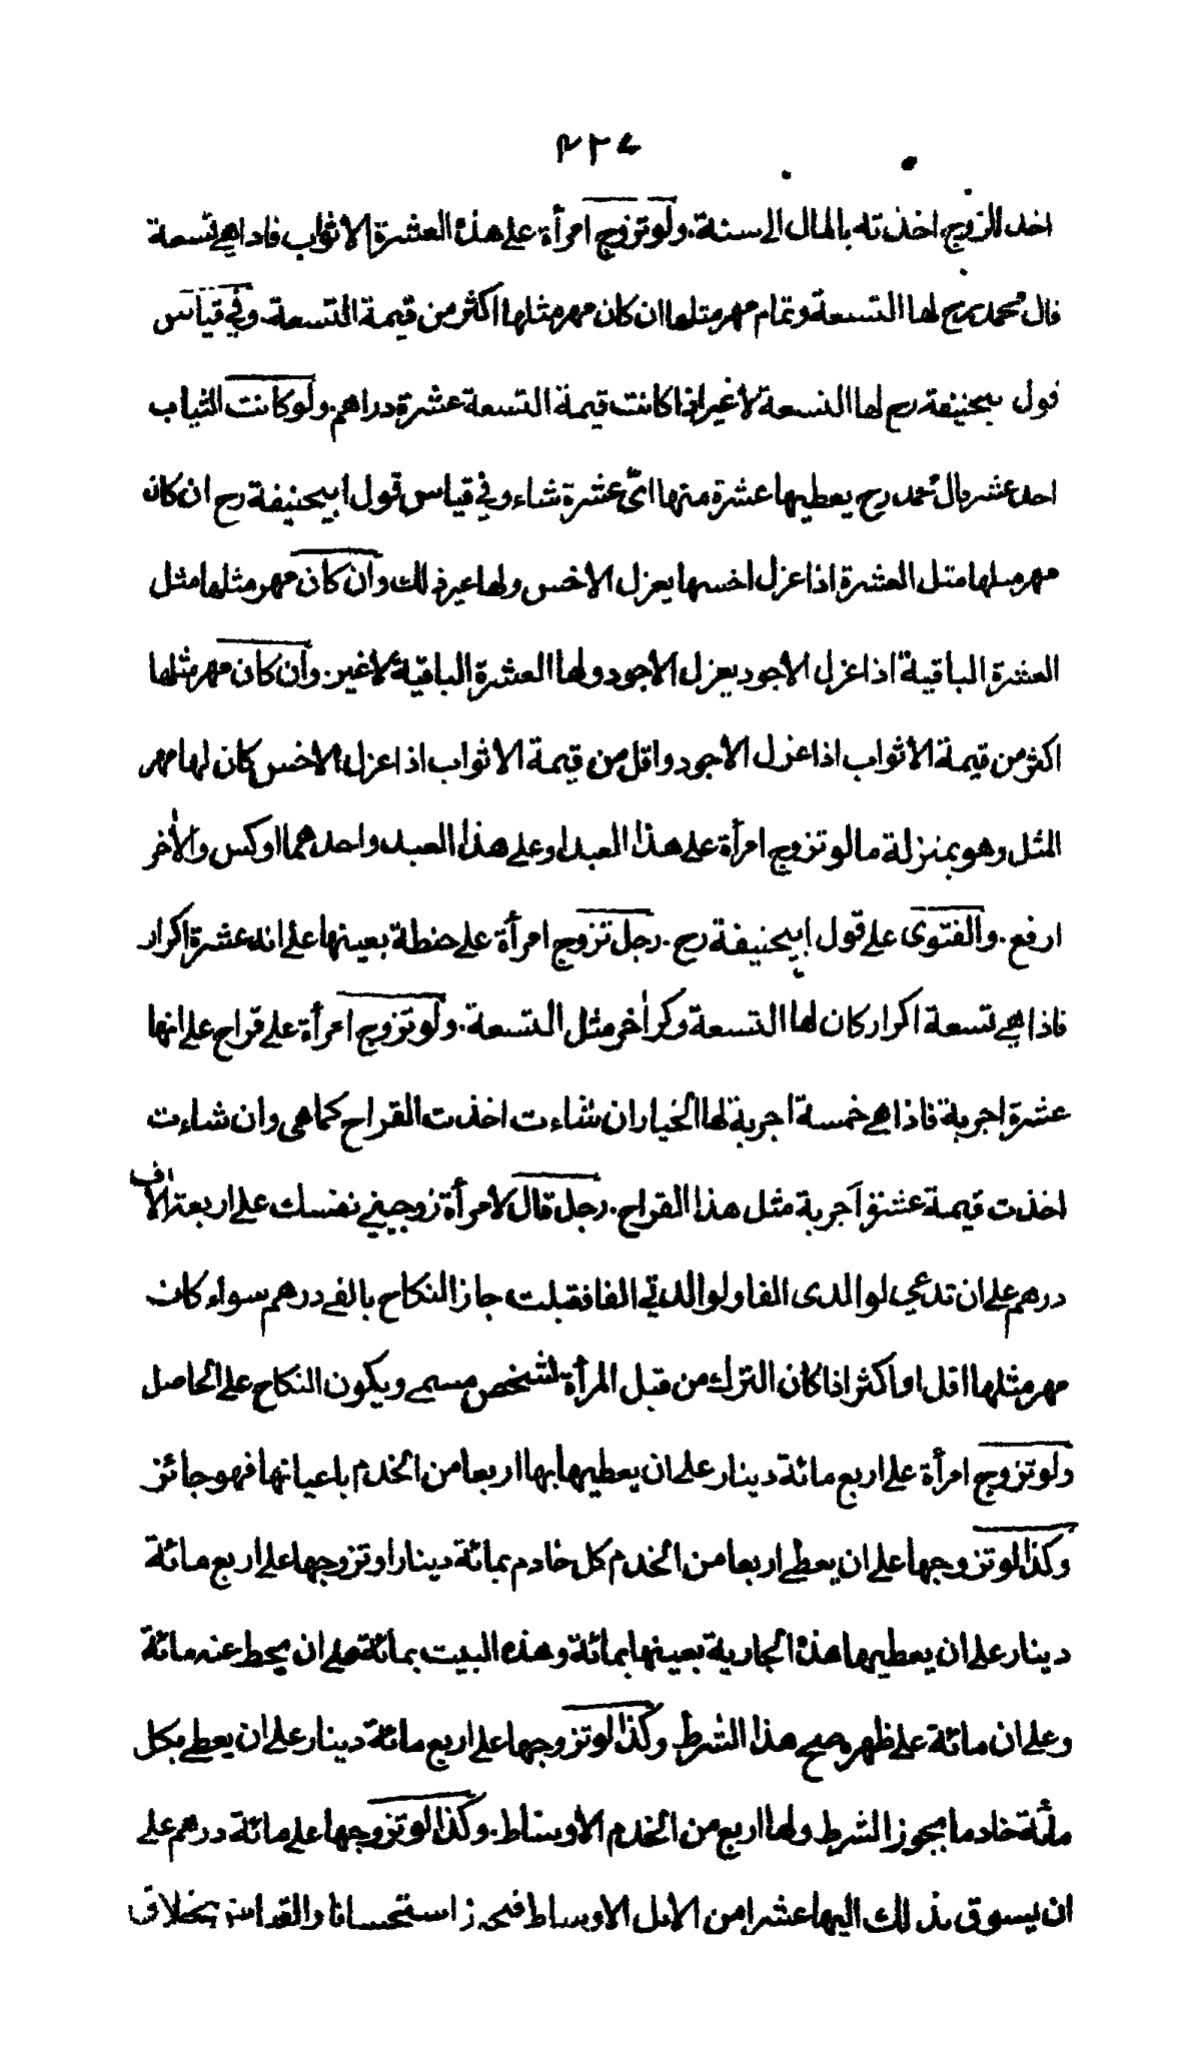 ٤٢٧
اخذ الزوج اخذته بالمال الى سنة. ولو تزوج امرأة على هذه العشرة الاثواب فاذا هي تسعة
قال محمد رح لها التسعة وتمام مهر مثلها ان كان مهر مثلها اكثر من قيمة التسعة. وفي قياس
قول ابيحنيفة رح لها التسعة لا غير اذا كانت قيمة التسعة عشرة دراهم. ولو كانت الثياب
احد عشر قال محمد رح يعطيها عشرة منها اىّ عشرة شاء وفي قياس قول ابيحنيفة رح ان كان
مهر مثلها مثل العشرة اذا عزل اخسها يعزل الاخس ولها غير ذلك وان كان مهر مثلها مثل
العشرة الباقية اذا عزل الاجود يعزل الاجود ولها العشرة الباقية لا غير. وان كان مهر مثلها
اكثر من قيمة الاثواب اذا عزل الاجود واقل من قيمة الاثواب اذا عزل الاخس كان لها مهر
المثل وهو بمنزلة ما لو تزوج امرأة على هذا العبد او على هذا العبد واحدهما اوكس والاٰخر
ارفع. والفتوى على قول ابيحنيفة رح. رجل تزوج امرأة على حنطة بعينها على انه عشرة اكرار
فاذا هي تسعة اكرار كان لها التسعة وكر اٰخر مثل التسعة. ولو تزوج امرأة على قراح على انها
عشرة اجربة فاذا هي خمسة اجربة لها الخيار ان شاءت اخذت القراح كما هي وان شاءت
اخذت قيمة عشرة اَجربة مثل هذا القراح. رجل قال لامرأة زوجيني نفسك على اربعة الاف
درهم على ان تدعي لوالدى الفا ولوالدتي الفا فقبلت جاز النكاح بالفي درهم سواء كان
مهر مثلها اقل او اكثر اذا كان الترك من قبل المرأة لشخص مسمى ويكون النكاح على الحاصل
ولو تزوج امرأة على اربع مائة دينار على ان يعطيها بها اربعا من الخدم باعيانها فهو جائز
وكذا لو تزوجها على ان يعطى اربعا من الخدم كل خادم بمائة دينار او تزوجها على اربع مائة
دينار على ان يعطيها هذه الجارية بعينها بمائة وهذه البيت بمائة على ان يحط عنه مائة
وعلى ان مائة على ظهره صح هذا الشرط وكذا لو تزوجها على اربع مائة دينار على ان يعطى بكل
مائة خادما يجوز الشرط ولها اربع من الخدم الاوساط. وكذا لو تزوجها على مائة درهم على
ان يسوق بذلك اليها عشرا من الابل الاوساط فيجوز استحسانا والقياس بخلاف